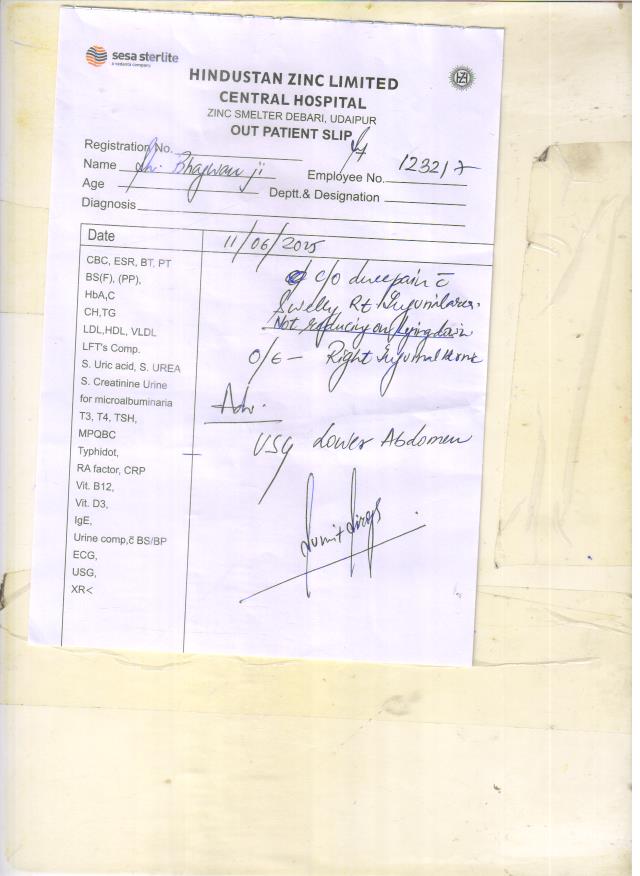 sesa sterlite
a vedanta company
HINDUSTAN ZINC LIMITED
CENTRAL HOSPITAL
ZINC SMELTER DEBARI, UDAIPUR
OUT PATIENT SLIP
Registration No.
Name Sh. Bhagwan ji Employee No. 1232/7
Age Deptt.& Designation
Diagnosis
Date 11/06/2025
CBC, ESR, BT, PT
BS(F), (PP),
HbA,C
CH,TG
LDL,HDL, VLDL
LFT's Comp.
S. Uric acid, S. UREA
S. Creatinine Urine
for microalbuminaria
T3, T4, TSH,
MPQBC
Typhidot,
RA factor, CRP
Vit. B12,
Vit. D3,
IgE,
Urine comp,c̄ BS/BP
ECG,
USG,
XR<
c/o pain c̄
Swelling Rt Inguinal area.
Not reducing on lying down
O/E - Right Inguinal
Adv.
USG Lower Abdomen